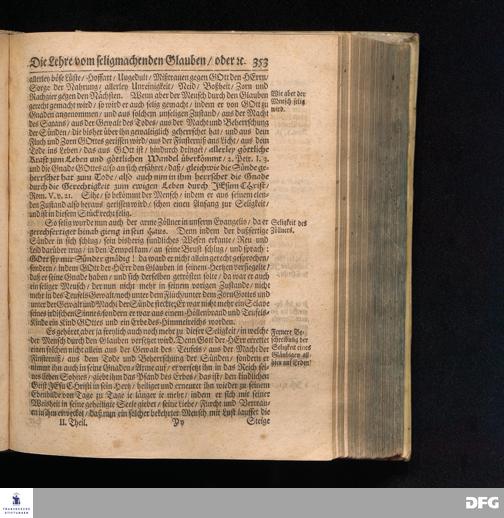 Die Lehre vom seligmachenden Glauben / oder ꝛc. 353
allerley böse Lüste / Hoffart / Ungedult / Mißtrauen gegen GOtt den HErrn /
Sorge der Nahrung / allerley Unreinigkeit / Neid / Boßheit / Zorn und
Rachgier gegen den Nächsten. Wenn aber der Mensch durch den Glauben
gerecht gemacht wird / so wird er auch selig gemacht / indem er von GOtt zu
Gnaden angenommen / und aus solchem unseligen Zustand / aus der Macht
des Satans / aus der Gewalt des Todes / aus der Macht und Beherrschung
der Sünden / die bißher über ihn gewaltiglich geherrschet hat / und aus dem
Fluch und Zorn GOttes gerissen wird / aus der Finsterniß ans Licht / aus dem
Tode ins Leben / das aus GOtt ist / hindurch dringet / allerley göttliche
Krafft zum Leben und göttlichen Wandel überkömmt / 2. Petr. I. 3.
und die Gnade GOttes also an sich erfähret / daß / gleichwie die Sünde ge-
herrschet hat zum Tode / also auch nun in ihm herrschet die Gnade
durch die Gerechtigkeit zum ewigen Leben durch JEsum CHrist /
Rom. V. v. 21. Sihe / so bekömmt der Mensch / indem er aus seinem elen-
den Zustand also heraus gerissen wird / schon einen Anfang zur Seligkeit /
und ist in diesem Stück recht selig.
Wie aber der
Mensch selig
wird.
So selig wurde nun auch der arme Zöllner in unserm Evangelio / da er
gerechtfertiget hinab gieng in sein Haus. Denn indem der bußfertige
Sünder in sich schlug / sein bisherig sündliches Wesen erkante / Reu und
Leid darüber trug / in den Tempel kam / an seine Brust schlug / und sprach:
GOtt sey mir Sünder gnädig! da wurde er nicht allein gerecht gesprochen /
sondern / indem GOtt der HErr den Glauben in seinem Hertzen versiegelte /
daß er seine Gnade haben / und sich derselben getrösten solte / da war er auch
ein seliger Mensch / der nun nicht mehr in seinem vorigen Zustande / nicht
mehr in des Teufels Gewalt / noch unter dem Fluch / unter dem Zorn Gottes und
unter der Gewalt und Macht der Sünde steckte; Er war nicht mehr ein Sclave
seines irdischen Sinnes / sondern er war aus einem Höllenbrand und Teufels-
Kinde ein Kind GOttes und ein Erbe des Himmelreichs worden.
Seligkeit des
Zöllners.
Es gehöret aber ja freylich auch noch mehr zu dieser Seligkeit / in welche
der Mensch durch den Glauben versetzet wird. Denn Gott der HErr errettet
einen solchen nicht allein aus der Gewalt des Teufels / aus der Macht der
Finsterniß / aus dem Tode und Beherrschung der Sünden / sondern er
nimmt ihn auch in seine Gnaden / Arme auf / er versetzt ihn in das Reich sei-
nes lieben Sohnes / giebt ihm das Pfand des Erbes / das ist / den kindlichen
Geist JEsu Christi in sein Hertz / heiliget und erneuret ihn wieder zu seinem
Ebenbilde von Tage zu Tage ie länger ie mehr / indem er sich mit seiner
Weisheit in seine geheiligte Seele giebet / seine Liebe / Furcht und Vertrau-
en in ihm erwecket / daß nun ein solcher bekehrter Mensch mit Lust lauffet die
Fernere Be-
schreibung der
Seligkeit eines
Gläubigen all-
hier auf Erden.
II. Theil. Yy Steige
FRANCKESCHE
STIFTUNGEN
DFG